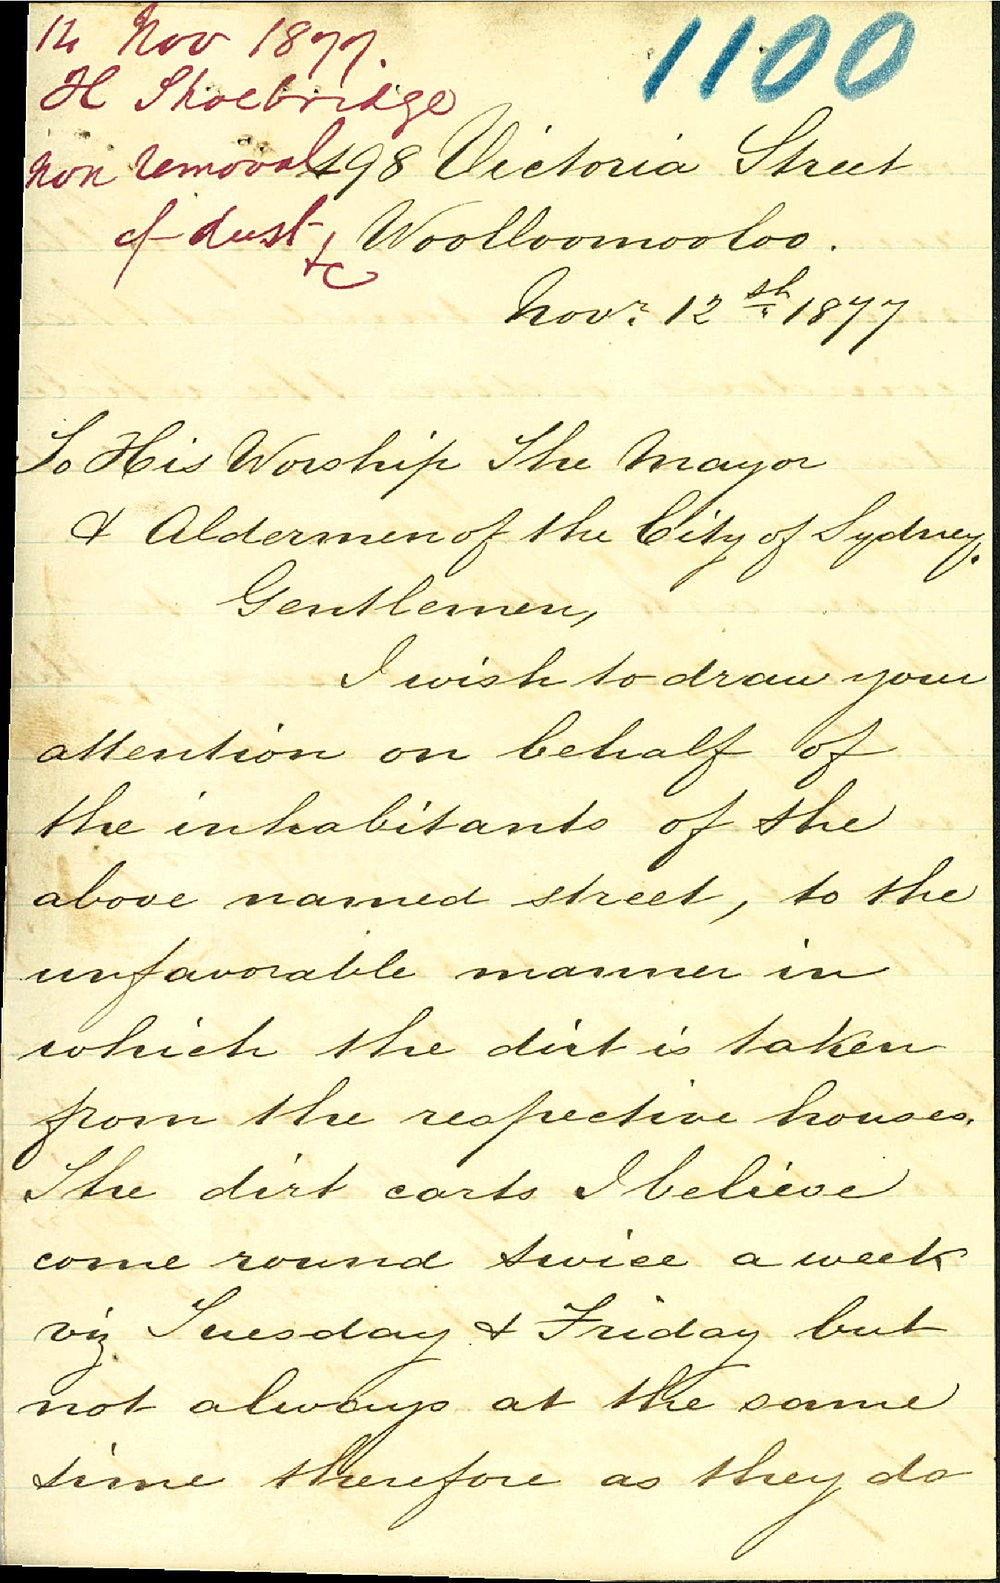 14 Nov 1877.
1100
H Shoebridge
non removal
of dust &c
198 Victoria Street
Woolloomooloo.
Novr. 12th 1877
To His Worship The Mayor
& Aldermen of the City of Sydney.
Gentlemen,
I wish to draw your
attention on behalf of
the inhabitants of the
above named street, to the
unfavorable manner in
which the dirt is taken
from the respective houses.
The dirt carts I believe
come round twice a week
viz Tuesday & Friday but
not always at the same
time therefore as they do